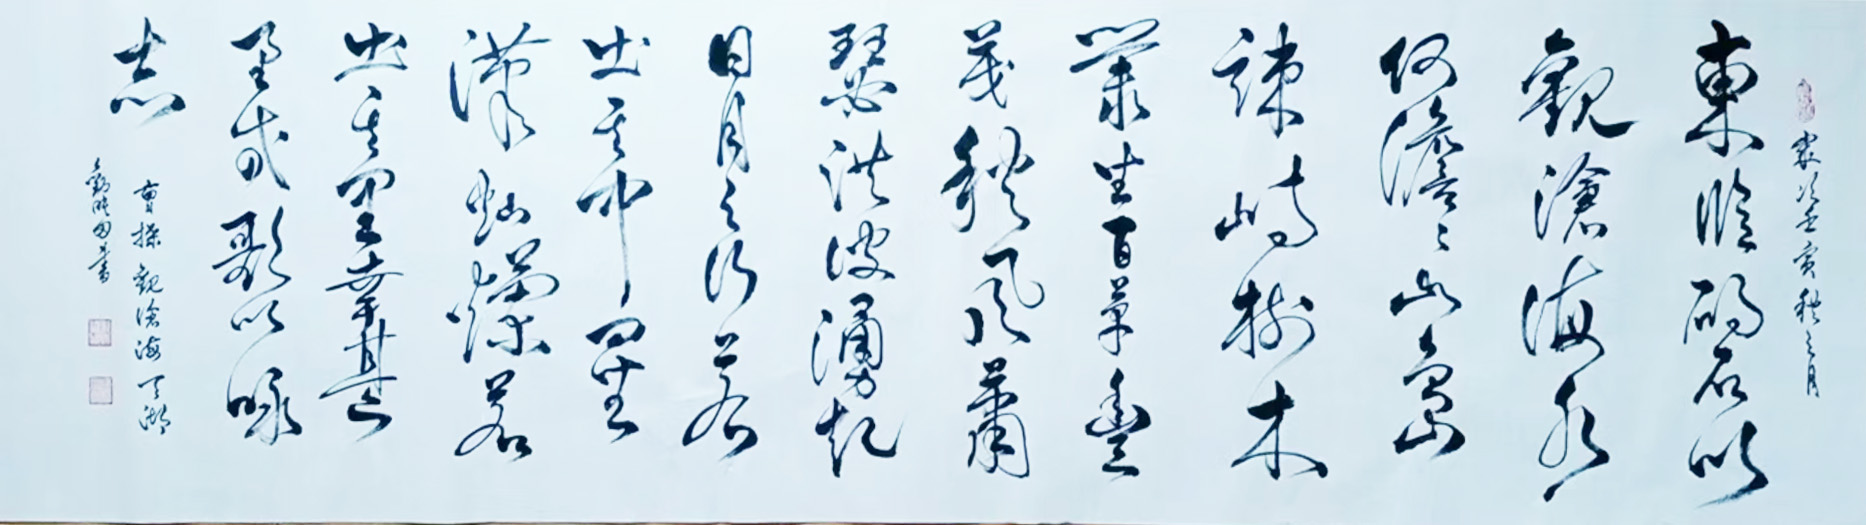 歲次壬寅秋之月
東臨碣石以
觀滄海水
何澹々山島
竦峙樹木
叢生百草豐
茂秋風蕭
瑟洪波湧起
日月之行若
出其中星
漢灿爛若
出其里幸甚
至哉歌以詠
志
曹操觀滄海
書